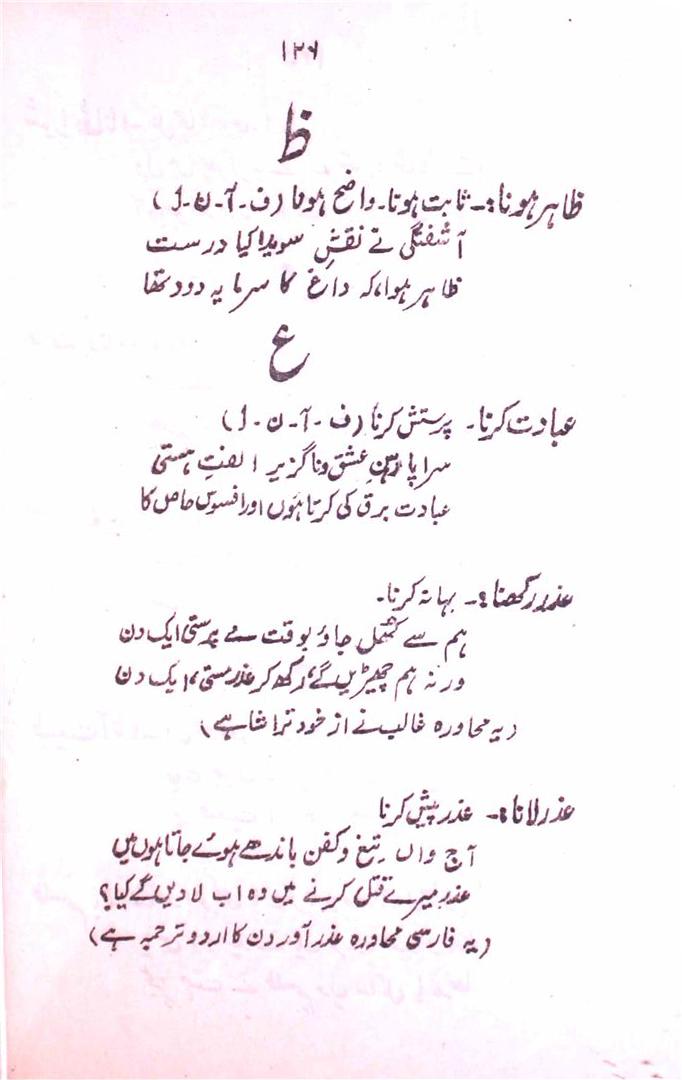 ۱۲۶
ظ
ظاہر ہونا:۔ ثابت ہونا۔ واضح ہونا (ف۔آ۔ن۔ل)
آشفتگی نے نقشِ سویدا کیا درست
ظاہر ہوا، کہ داغ کا سرمایہ دود تھا
ع
عبادت کرنا۔ پرستش کرنا (ف۔آ۔ن۔ل)
سراپا رہنِ عشق و ناگزیر الفتِ ہستی
عبادت برق کی کرتا ہوں اور افسوس حاصل کا
عذر رکھنا:۔ بہانہ کرنا۔
ہم سے کھُل جاؤ بوقت مے پرستی ایک دن
ورنہ ہم چھیڑیں گے، رکھ کر عذرِ مستی، ایک دن
(یہ محاورہ غالب نے از خود تراشا ہے)
عذر لانا:۔ عذر پیش کرنا
آج واں تیغ و کفن باندھے ہوئے جاتا ہوں میں
عذر میرے قتل کرنے میں وہ اب لا دیں گے کیا؟
(یہ فارسی محاورہ عذر آوردن کا اردو ترجمہ ہے)